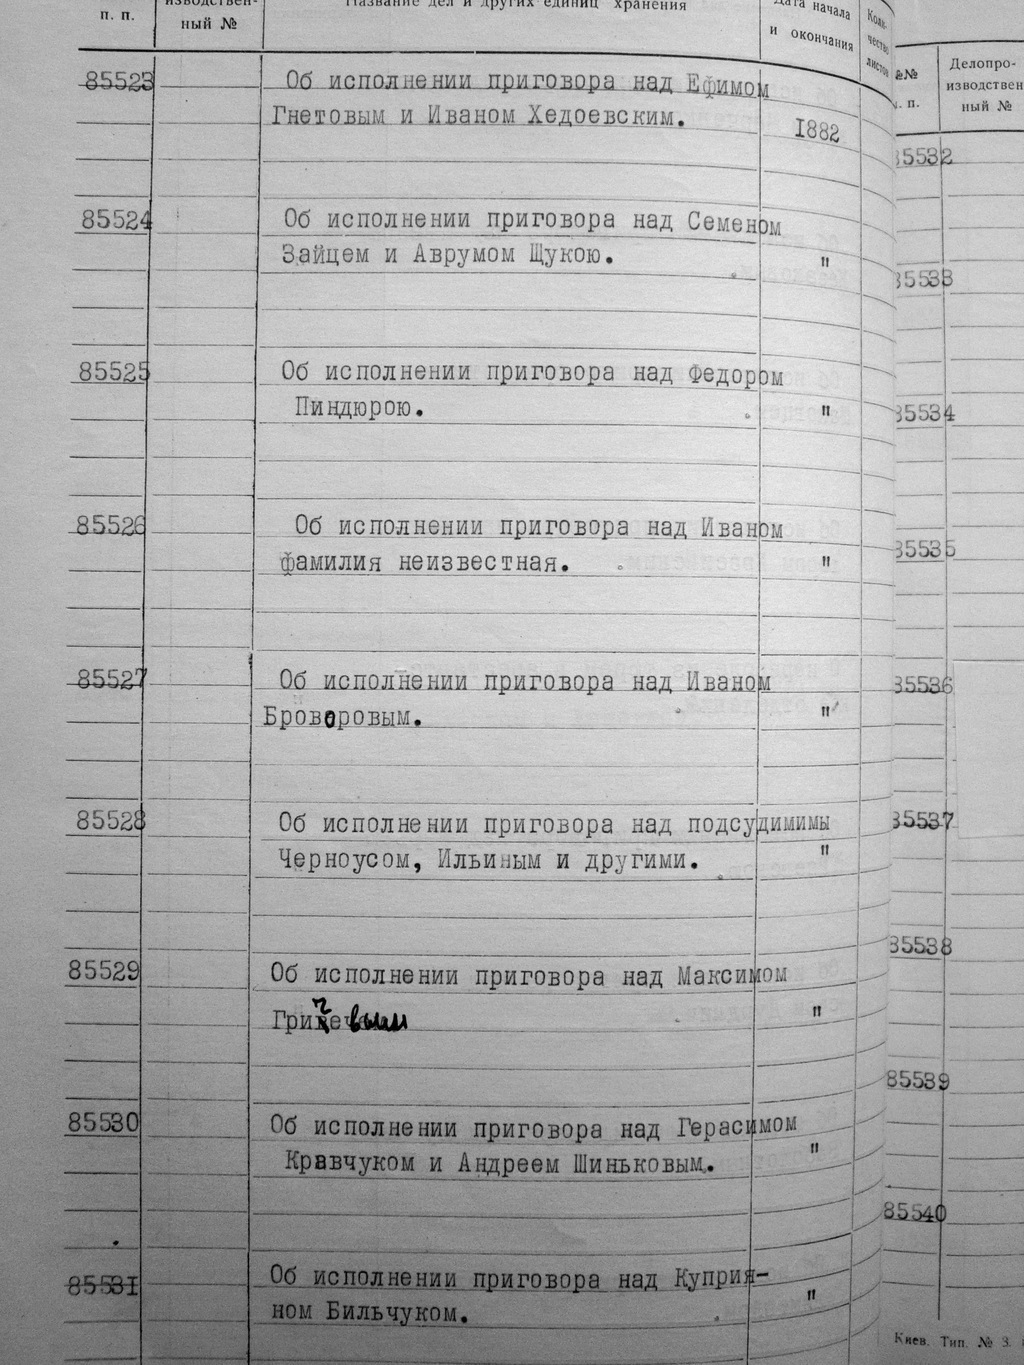 изводствен- Название дел и других единиц хранения Дата начала Коли-
п. п. ный № и окончания чество
листов
85523 Об исполнении приговора над Ефимом
Гнетовым и Иваном Хедоевским. 1882
85524 Об исполнении приговора над Семеном
Зайцем и Аврумом Щукою. "
85525 Об исполнении приговора над Федором
Пиндюрою. "
85526 Об исполнении приговора над Иваном
фамилия неизвестная. "
85527 Об исполнении приговора над Иваном
Броворовым. "
85528 Об исполнении приговора над подсудимимы
Черноусом, Ильиным и другими. "
85529 Об исполнении приговора над Максимом
"
85530 Об исполнении приговора над Герасимом
Кравчуком и Андреем Шиньковым. "
85531 Об исполнении приговора над Куприя-
ном Бильчуком. "
№№ Делопро-
п. изводствен
ный №
85532
85533
85534
85535
85536
85537
85538
85539
85540
Киев. Тип. № 3.